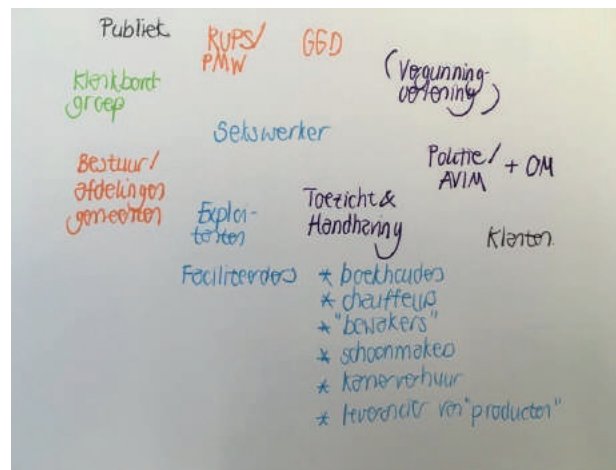 Publiek
RUPS/
PMW
GGD
(Vergunning-
verlening)
Klankbord
groep
Sekswerker
Bestuur/
afdelingen
gemeenten
Politie/
AVIM
+ OM
Exploi-
tanten
Toezicht &
Handhaving
Klanten
Faciliteerders
* boekhouders
* chauffeurs
* "bewakers"
* schoonmakers
* kamerverhuur
* leverancier van "producten"